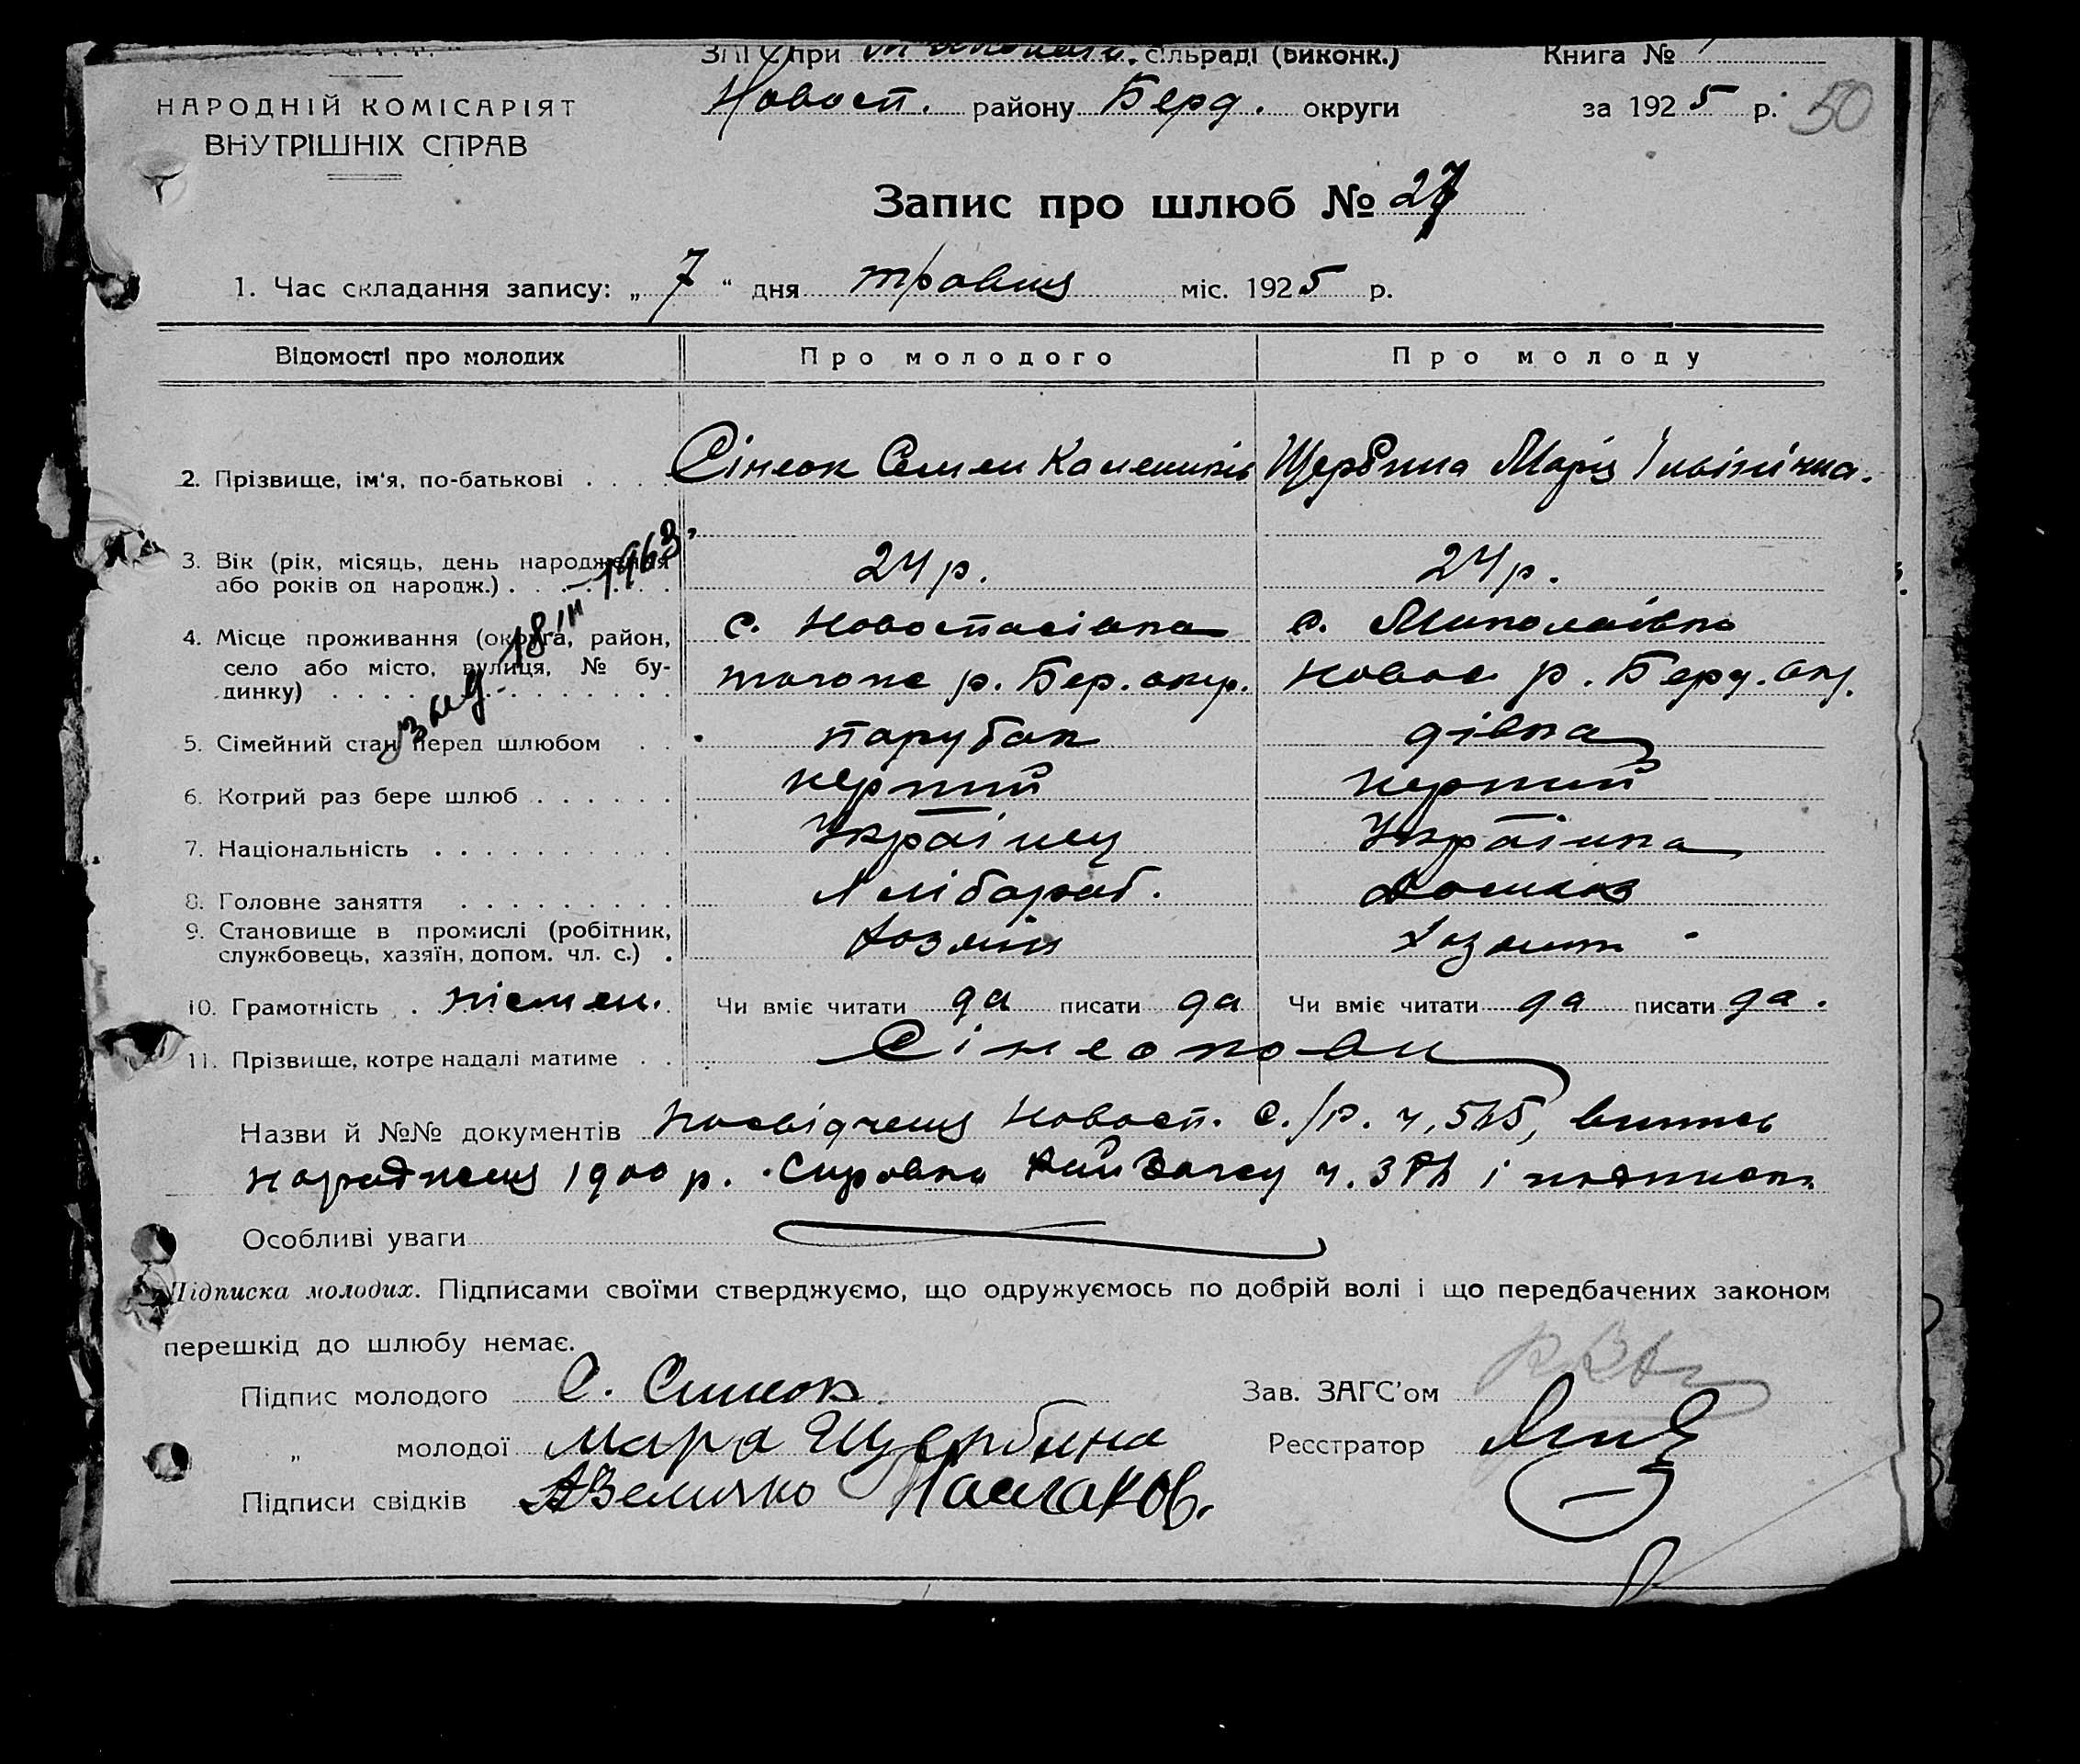 ЗАГС при сільраді (виконк.) Книга №
НАРОДНІЙ КОМІСАРІЯТ
ВНУТРІШНІХ СПРАВ
Новосп. району Берд. округи за 1925 р. 50
Запис про шлюб № 27
1. Час складання запису: „ 7 “ дня травня міс. 1925 р.
Відомості про молодих Про молодого Про молоду
2. Прізвище, ім'я, по-батькові . . . . Сінеок Семен Щербина Марія
3. Вік (рік, місяць, день народження 24 р. 24 р.
або років од народж.) . . . . . . . .
4. Місце проживання (округа, район, с. Новоспасівка с. Миколаївка
село або місто, вулиця, № бу- р. Бер. окр. Новос р. Берд. окр.
динку) . . . . . . . . . . . . . .
18/III 1963
5. Сімейний стан перед шлюбом . . парубок дівка
6. Котрий раз бере шлюб . . . . . . перший перший
7. Національність . . . . . . . . . . Українец Українка
8. Головне заняття . . . . . . . . . Хлібороб. Домаш
9. Становище в промислі (робітник, Хозяїн Хозяит
службовець, хазяїн, допом. чл. с.) .
10. Грамотність . письмен. Чи вміє читати да писати да Чи вміє читати да писати да.
11. Прізвище, котре надалі матиме . . Сінеокови
Назви й №№ документів посвідчення Новосп. с./р. ч. 515, витись
народження 1900 р. Справка ч. і
Особливі уваги
Підписка молодих. Підписами своїми стверджуємо, що одружуємось по добрій волі і що передбачених законом
перешкід до шлюбу немає.
Підпис молодого С. Синеок Зав. ЗАГС'ом
„ молодої Мара Щербина Реєстратор
Підписи свідків АВеличко